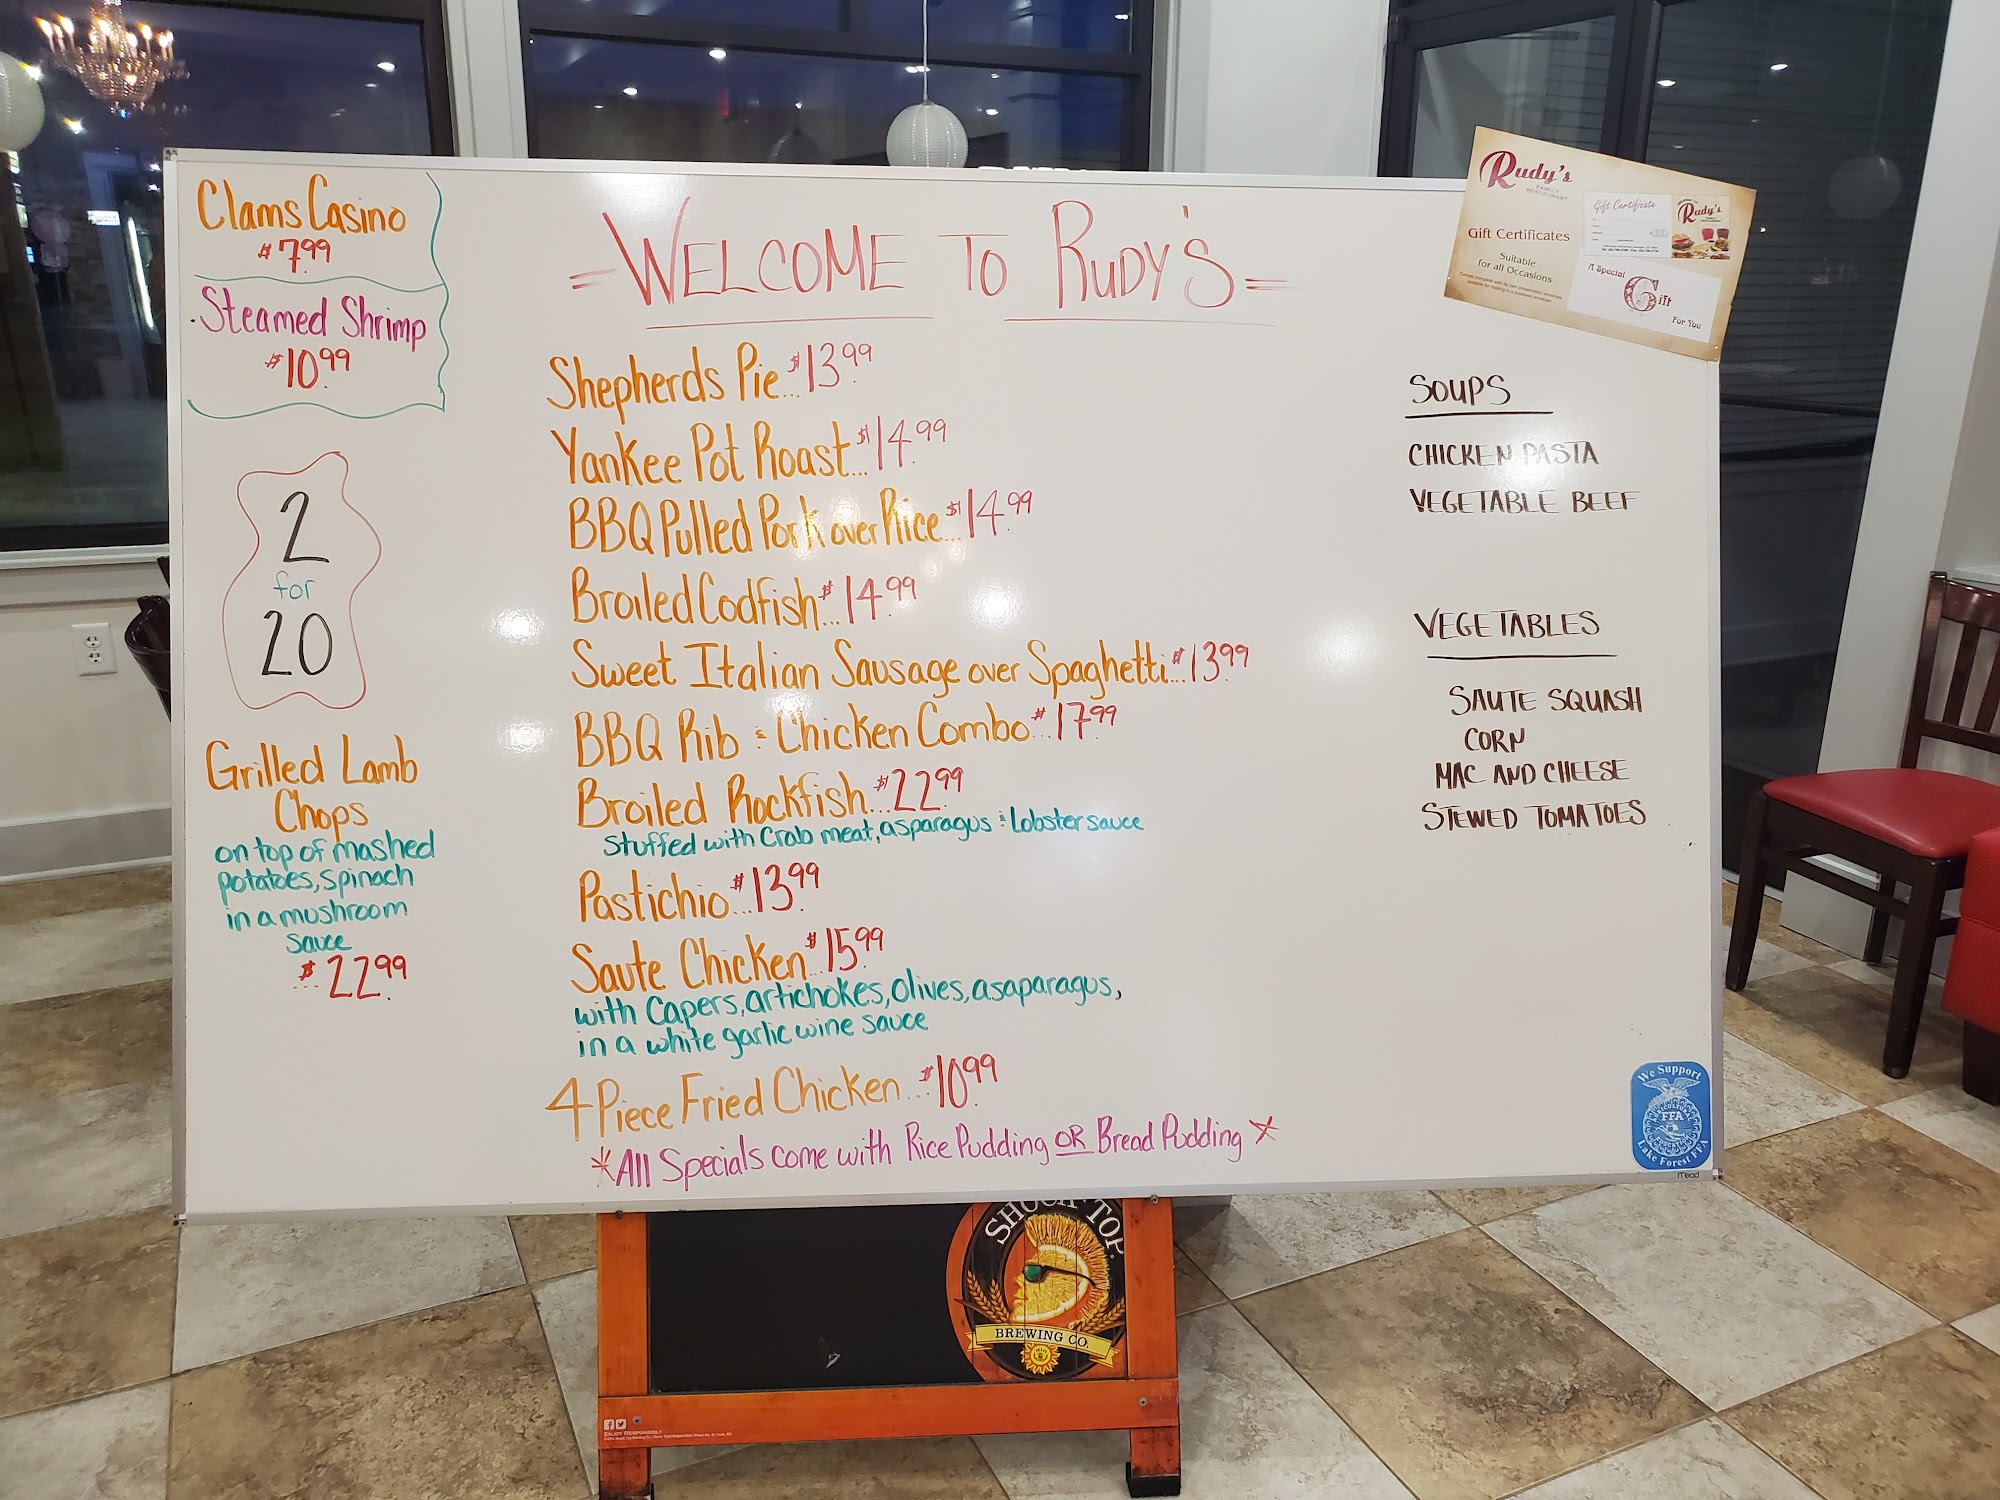 Clams Casino
$7.99
Steamed Shrimp
$10.99
2
for
20
Grilled Lamb
Chops
on top of mashed
potatoes, spinach
in a mushroom
sauce
$22.99
= WELCOME TO RUDY'S =
Shepherds Pie...$13.99
Yankee Pot Roast...$14.99
BBQ Pulled Pork over Rice...$14.99
Broiled Codfish...$14.99
Sweet Italian Sausage over Spaghetti...$13.99
BBQ Rib & Chicken Combo...$17.99
Broiled Rockfish...$22.99
Stuffed with Crab meat, asparagus & Lobster sauce
Pastichio...$13.99
Saute Chicken...$15.99
with Capers, artichokes, olives, asaparagus,
in a white garlic wine sauce
4 Piece Fried Chicken...$10.99
*All Specials come with Rice Pudding OR Bread Pudding*
Rudy's
FAMILY
RESTAURANT
Gift Certificates
Suitable
for all Occasions
Gift Certificate
Rudy's
A Special
Gift
For You
SOUPS
CHICKEN PASTA
VEGETABLE BEEF
VEGETABLES
SAUTE SQUASH
CORN
MAC AND CHEESE
STEWED TOMATOES
We Support
FFA
Lake Forest FFA
Mead
SHOCK TOP
BREWING CO.
ENJOY RESPONSIBLY